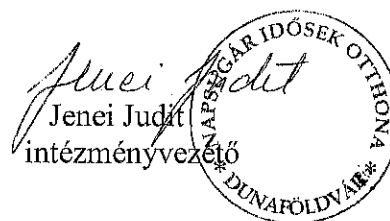 Jenei Judit
Jenei Judit
intézményvezető
NAPSUGÁR IDŐSEK OTTHONA
* DUNAFÖLDVÁR *